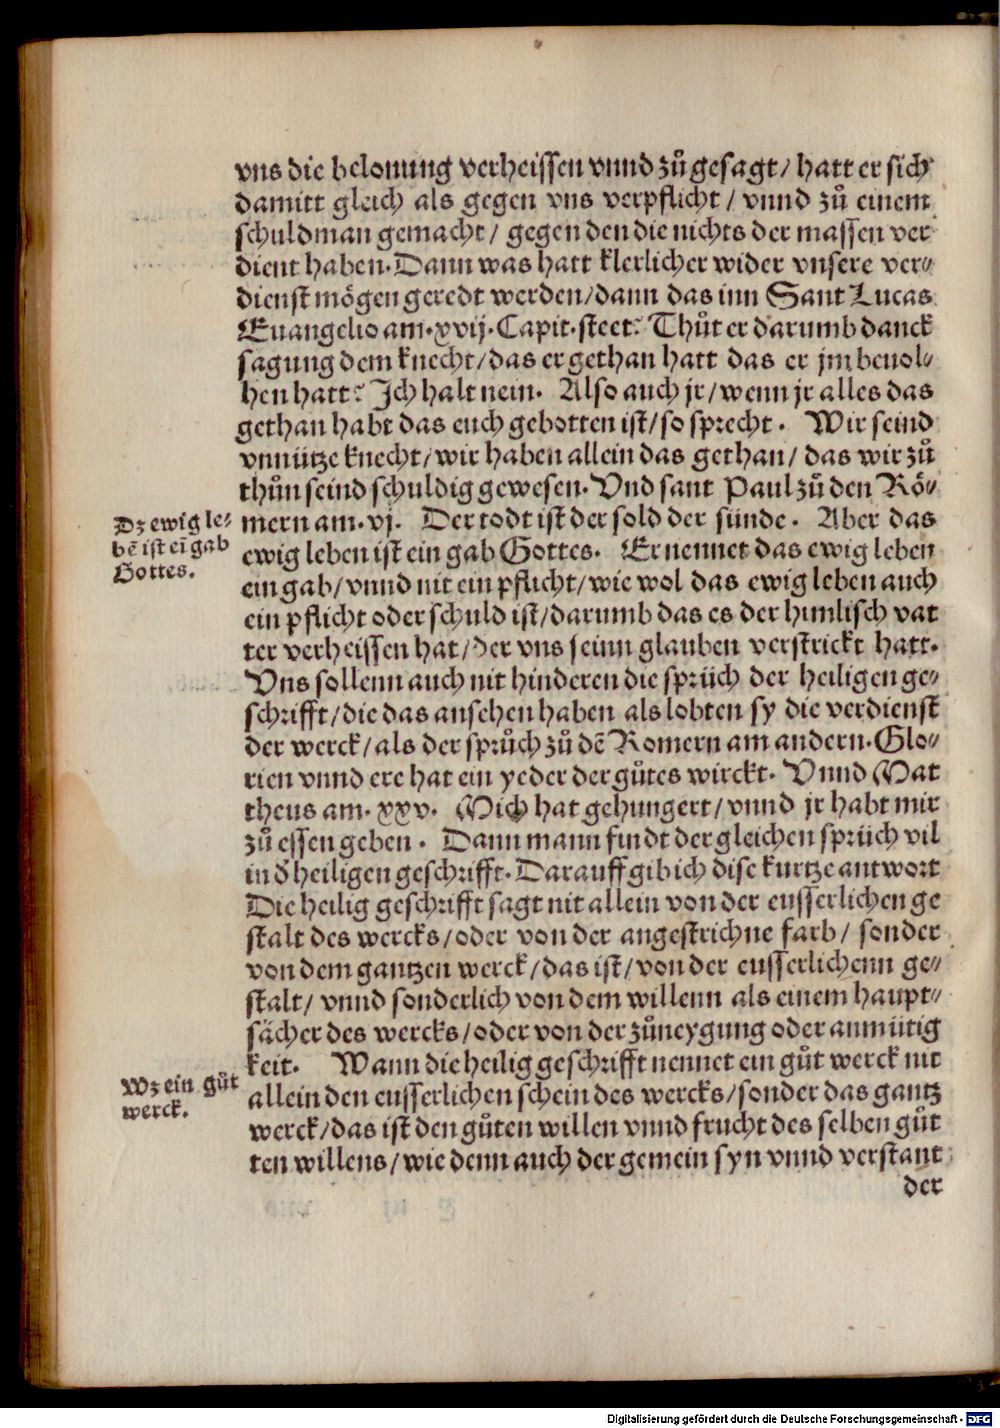 vns die belonung verheissen vnnd zů gesagt/ hatt er sich
damitt gleich als gegen vns verpflicht/ vnnd zů einem
schuldman gemacht/ gegen den die nichts der massen ver
dient haben. Dann was hatt klerlicher wider vnsere ver⸗
dienst mögen geredt werden/ dann das inn Sant Lucas
Euangelio am. xvij. Capit. steet? Thůt er darumb danck
sagung dem knecht/ das er gethan hatt das er jm beuol⸗
hen hatt? Ich halt nein. Also auch jr/ wenn jr alles das
gethan habt das euch gebotten ist/ so sprecht. Wir seind
vnnütze knecht/ wir haben allein das gethan/ das wir zů
thůn seind schuldig gewesen. Vnd sant Paul zů den Rö⸗
mern am. vj. Der todt ist der sold der sünde. Aber das
Dz ewig le⸗
bē ist eī gab
Gottes.
ewig leben ist ein gab Gottes. Er nennet das ewig leben
ein gab/ vnnd nit ein pflicht/ wie wol das ewig leben auch
ein pflicht oder schuld ist/ darumb das es der himlisch vat
ter verheissen hat/ der vns seinn glauben verstrickt hatt.
Vns sollenn auch nit hinderen die sprüch der heiligen ge⸗
schrifft/ die das ansehen haben als lobten sy die verdienst
der werck/ als der sprůch zů dē Romern am andern. Glo⸗
rien vnnd ere hat ein yeder der gůtes wirckt. Vnnd Mat
theus am. xxv. Mich hat gehungert/ vnnd jr habt mir
zů essen geben. Dann mann findt der gleichen sprüch vil
in d' heiligen geschrifft. Darauff gib ich dise kurtze antwort
Die heilig geschrifft sagt nit allein von der eusserlichen ge
stalt des wercks/ oder von der angestrichne farb/ sonder
von dem gantzen werck/ das ist/ von der eusserlichenn ge⸗
stalt/ vnnd sonderlich von dem willenn als einem haupt⸗
sächer des wercks/ oder von der zůneygung oder anmütig
keit. Wann die heilig geschrifft nennet ein gůt werck nit
Wz ein gůt
werck.
allein den eusserlichen schein des wercks/ sonder das gantz
werck/ das ist den gůten willen vnnd frucht des selben gůt
ten willens/ wie denn auch der gemein syn vnnd verstant
der
Digitalisierung gefördert durch die Deutsche Forschungsgemeinschaft - DFG